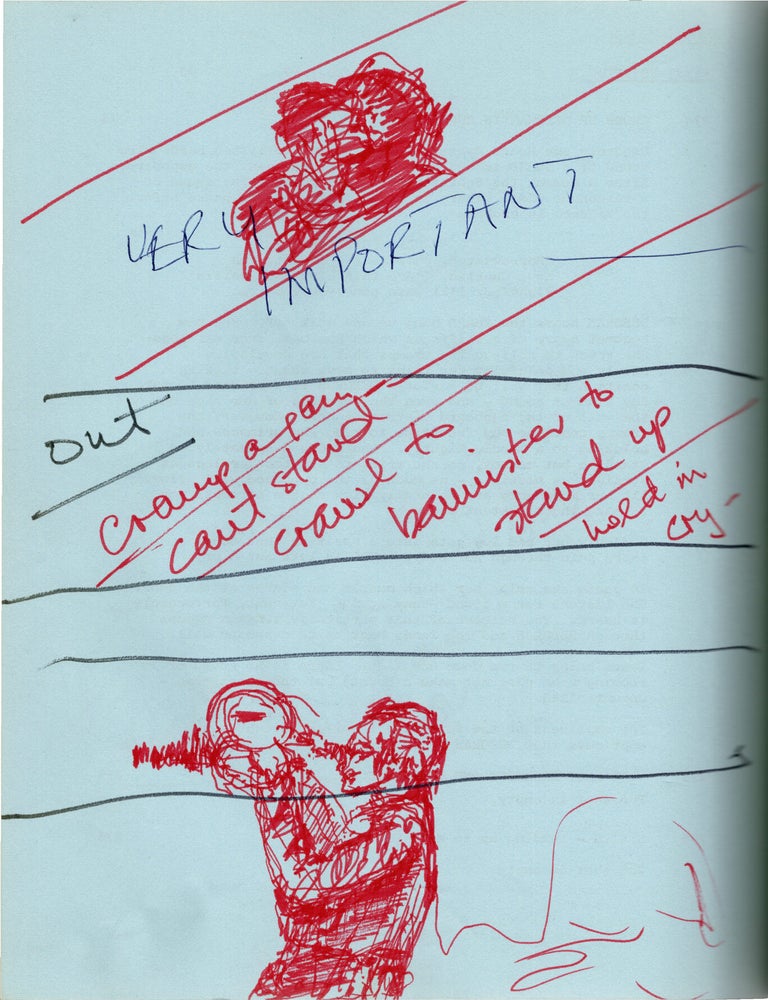 VERY
IMPORTANT
out
cramp again
can't stand
crawl to
bannister to
stand up
hold in
cry